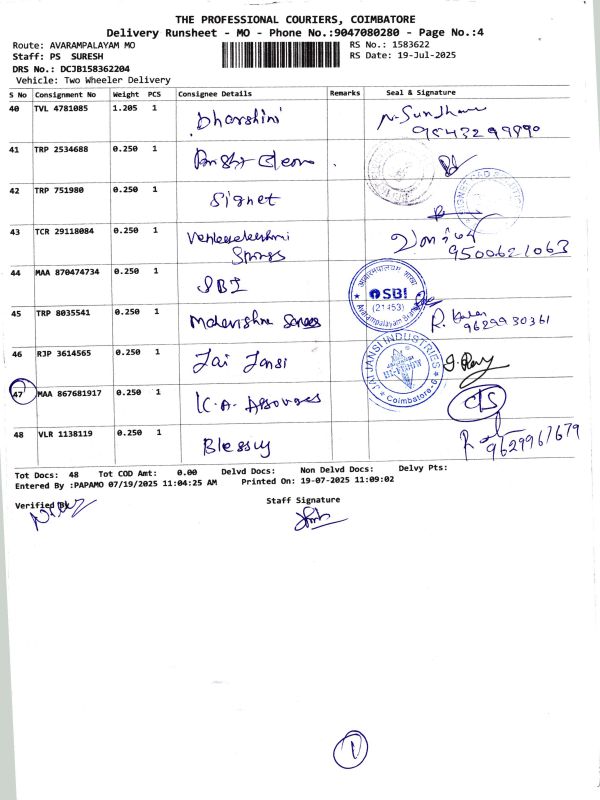 THE PROFESSIONAL COURIERS, COIMBATORE
Delivery Runsheet - MO - Phone No.:9047080280 - Page No.:4
Route: AVARAMPALAYAM MO RS No.: 1583622
Staff: PS SURESH RS Date: 19-Jul-2025
DRS No.: DCJB158362204
Vehicle: Two Wheeler Delivery
S No Consignment No Weight PCS Consignee Details Remarks Seal & Signature
40 TVL 4781085 1.205 1 Dharshini
9543299890
41 TRP 2534688 0.250 1
42 TRP 751980 0.250 1 Signet
43 TCR 29118084 0.250 1 Springs
9500621063
44 MAA 870474734 0.250 1 SBI SBI (21453) Avarampalayam Branch
45 TRP 8035541 0.250 1 R.
9629930361
46 RJP 3614565 0.250 1 Jai Jansi JAI JANSI INDUSTRIES Coimbatore-6
47 MAA 867681917 0.250 1 K.A.
48 VLR 1138119 0.250 1 Blessy 9629967679
Tot Docs: 48 Tot COD Amt: 0.00 Delvd Docs: Non Delvd Docs: Delvy Pts:
Entered By :PAPAMO 07/19/2025 11:04:25 AM Printed On: 19-07-2025 11:09:02
Verified By Staff Signature
1